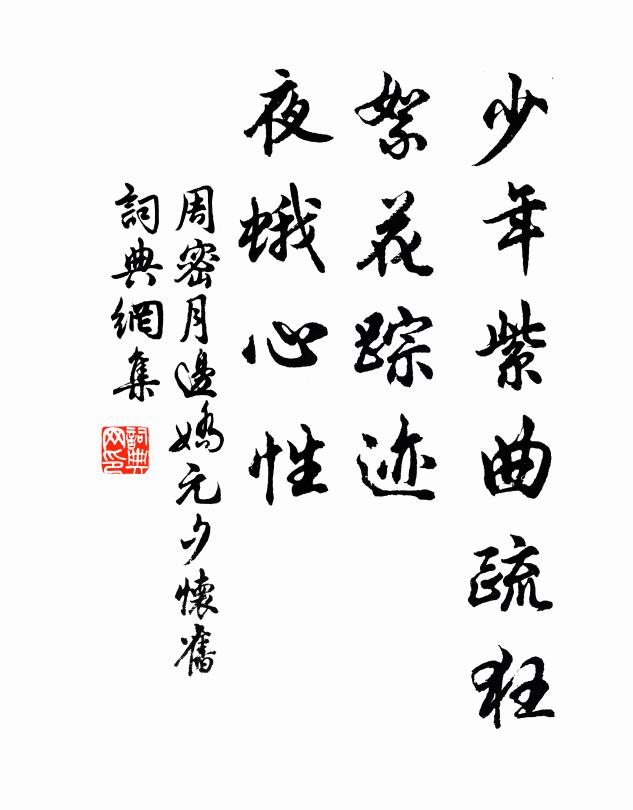 少年紫曲疏狂
絮花踪迹
夜蛾心性
周密月邊嬌元夕懷舊
詞典網集
詞典
网印